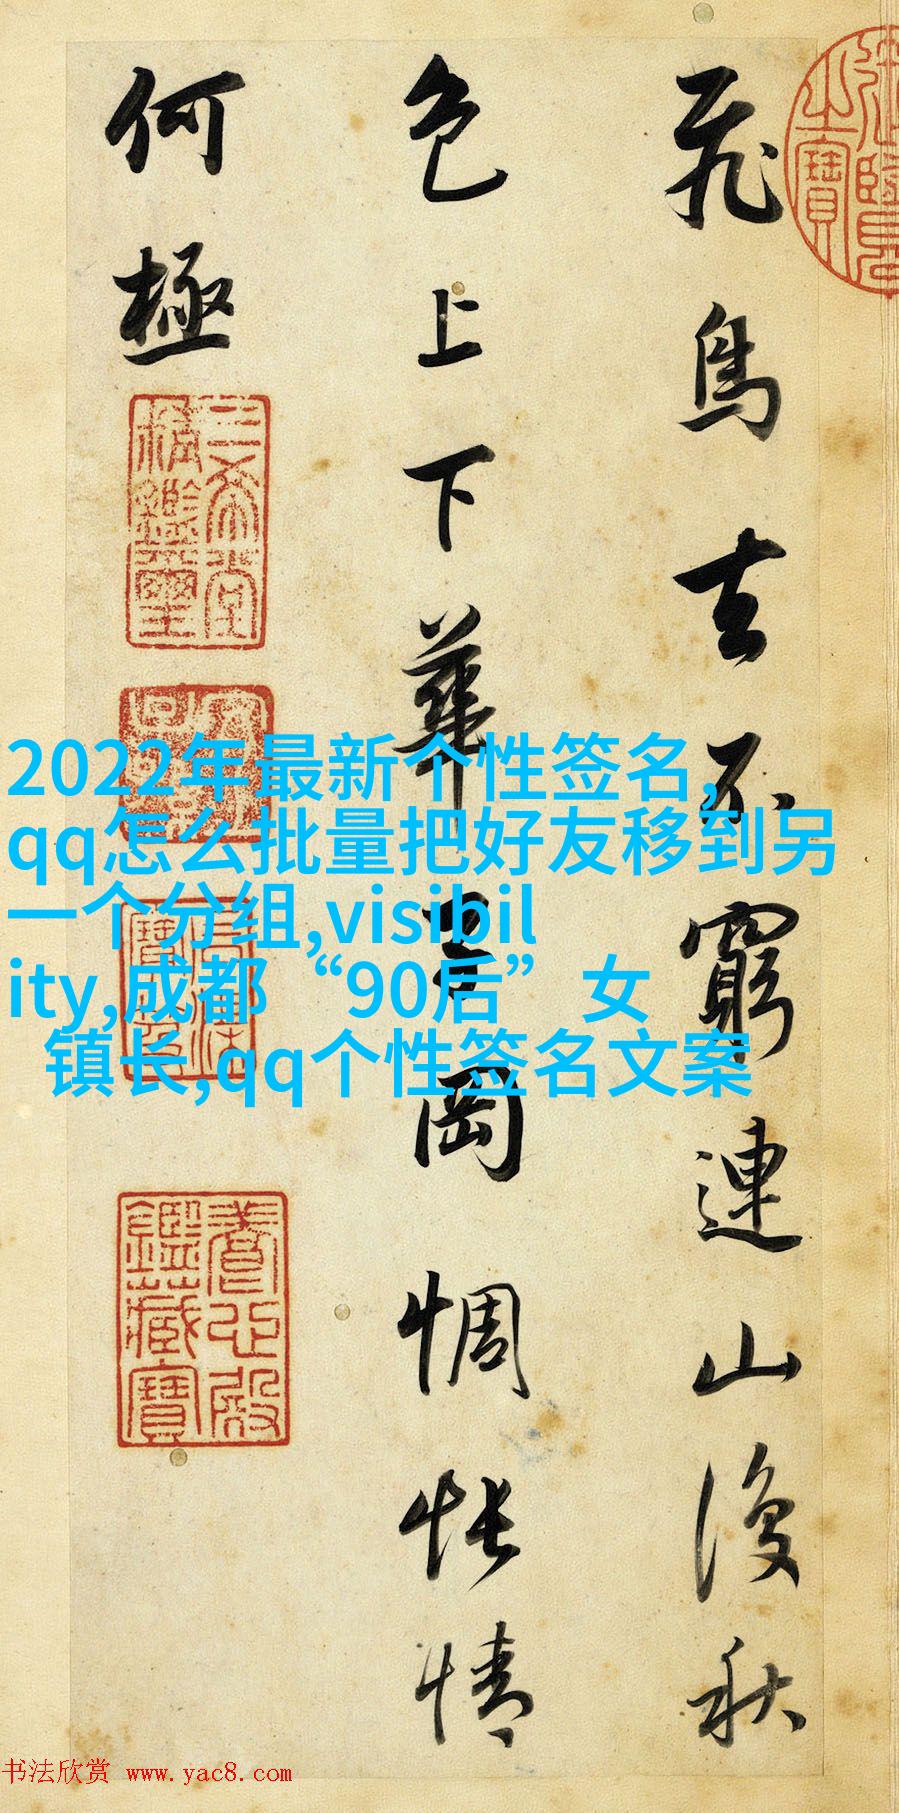 飛鳥去不窮連山復秋
色上下華子岡惆悵情
何極
三希堂精鑑璽
養心殿鑑藏寶
2022年最新个性签名,
qq怎么批量把好友移到另
一个分组,visibil
ity,成都“90后”女
镇长,qq个性签名文案
书法欣赏 www.yac8.com